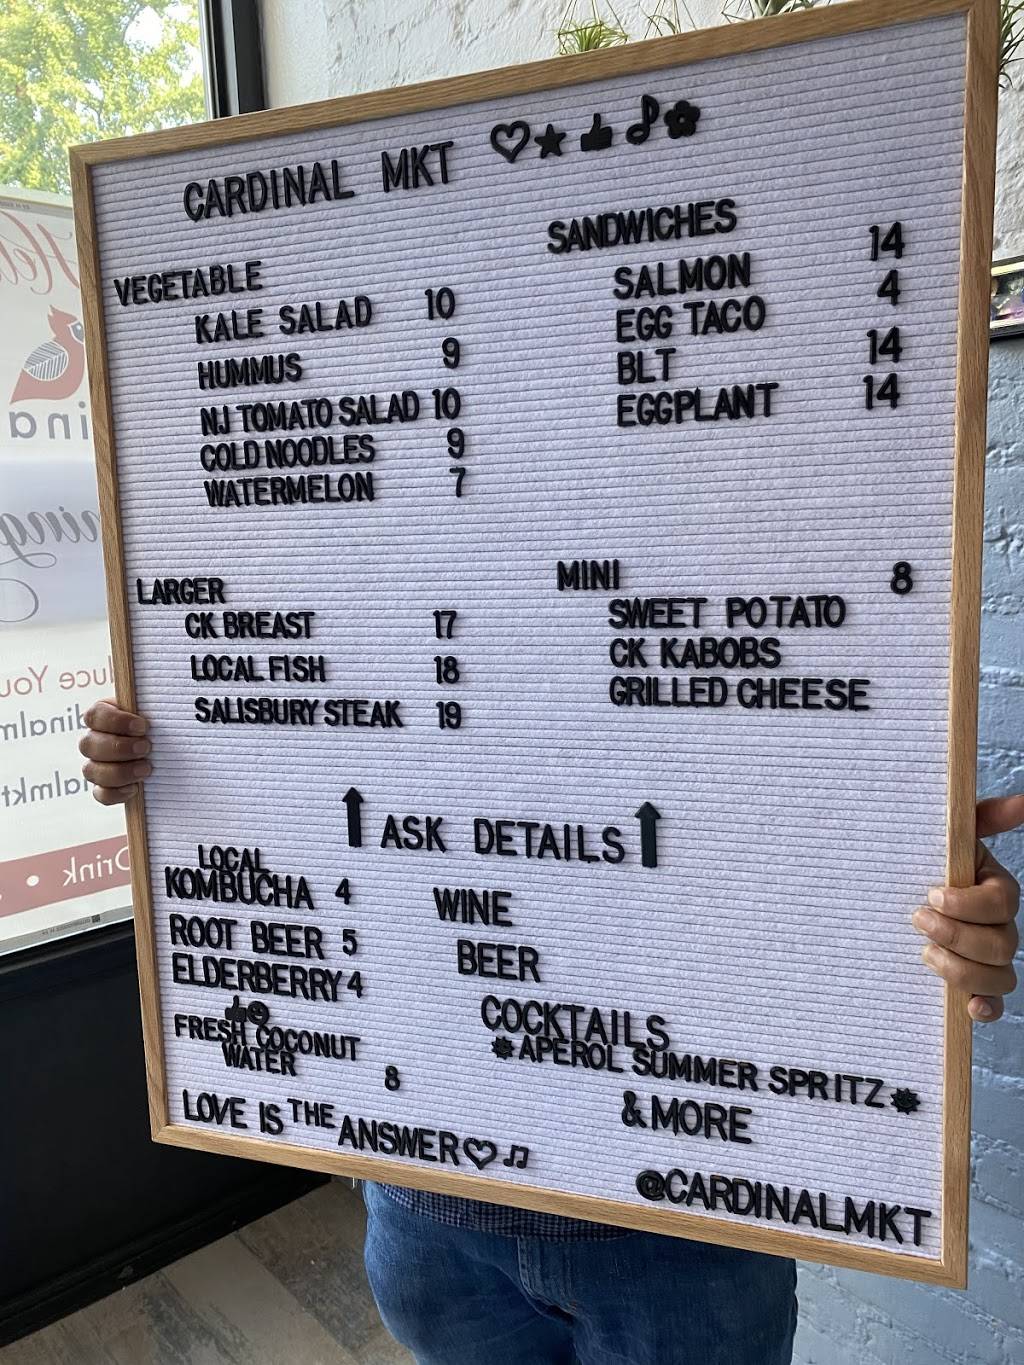 CARDINAL MKT
VEGETABLE
KALE SALAD 10
HUMMUS 9
NJ TOMATO SALAD 10
COLD NOODLES 9
WATERMELON 7
SANDWICHES
SALMON 14
EGG TACO 4
BLT 14
EGGPLANT 14
LARGER
CK BREAST 17
LOCAL FISH 18
SALISBURY STEAK 19
MINI 8
SWEET POTATO
CK KABOBS
GRILLED CHEESE
ASK DETAILS
LOCAL
KOMBUCHA 4
ROOT BEER 5
ELDERBERRY 4
FRESH COCONUT
WATER 8
WINE
BEER
COCKTAILS
APEROL SUMMER SPRITZ
& MORE
LOVE IS THE ANSWER
@CARDINALMKT
Drink